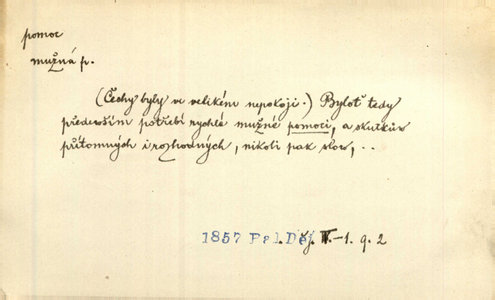 pomoc
mužná p.
(Čechy byly ve velikém nepokoji.) Byloť tedy
především potřebí rychlé mužné pomoci, a skutkův
přítomných i rozhodných, nikoli pak slov, ..
1857 Pal. Děj. IV.-1. 9. 2